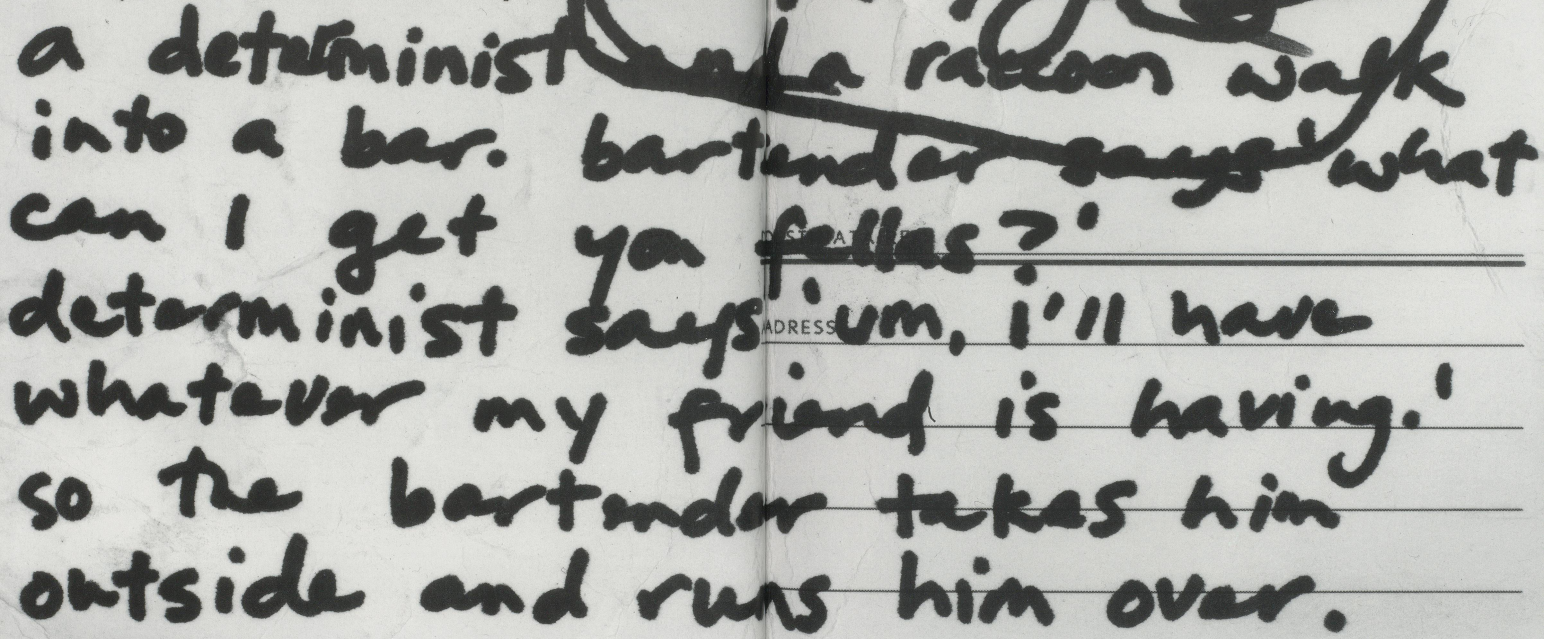 a determinist and a racoon walk
into a bar. bartender says 'what
can I get you fellas?'
determinist says 'um, i'll have
ADRESS
whatever my friend is having.'
so the bartender takes him
outside and runs him over.